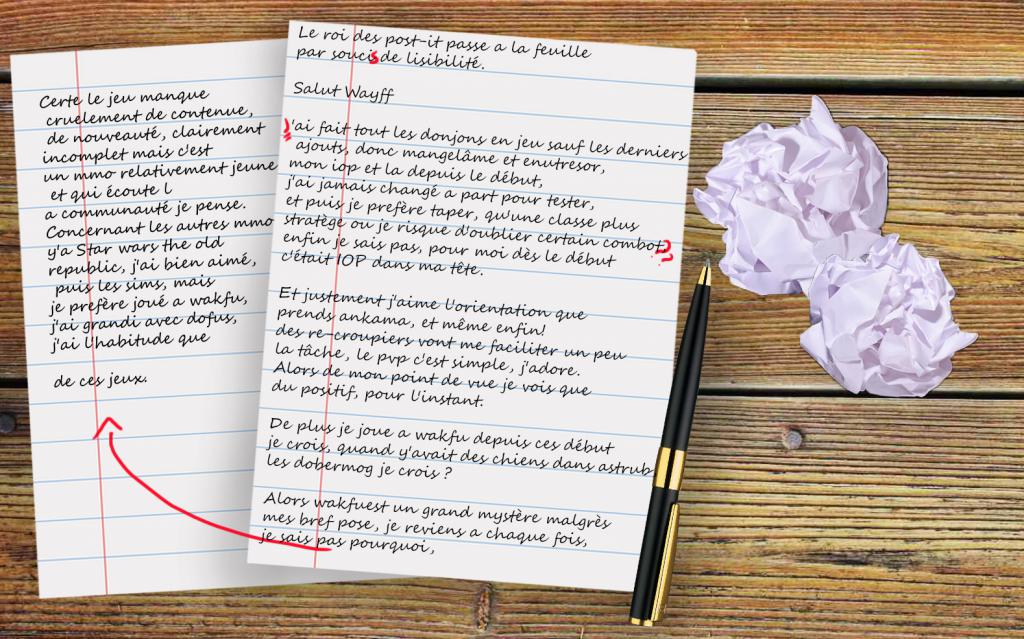 Le roi des post-it passe a la feuille
par soucis de lisibilité.
Salut Wayff
J'ai fait tout les donjons en jeu sauf les derniers
ajouts, donc mangelâme et enutresor,
mon iop et la depuis le début,
j'ai jamais changé a part pour tester,
et puis je prefère taper, qu'une classe plus
stratège ou je risque d'oublier certain combot??
enfin je sais pas, pour moi dès le début
c'était IOP dans ma tête.
Et justement j'aime l'orientation que
prends ankama, et même enfin!
des re-croupiers vont me faciliter un peu
la tâche, le pvp c'est simple, j'adore.
Alors de mon point de vue je vois que
du positif, pour l'instant.
De plus je joue a wakfu depuis ces début
je crois, quand y'avait des chiens dans astrub
les dobermog je crois ?
Alors wakfuest un grand mystère malgrès
mes bref pose, je reviens a chaque fois,
je sais pas pourquoi,
Certe le jeu manque
cruelement de contenue,
de nouveauté, clairement
incomplet mais c'est
un mmo relativement jeune
et qui écoute l
a communauté je pense.
Concernant les autres mmo
y'a Star wars the old
republic, j'ai bien aimé,
puis les sims, mais
je prefère joué a wakfu,
j'ai grandi avec dofus,
j'ai l'habitude que
de ces jeux.